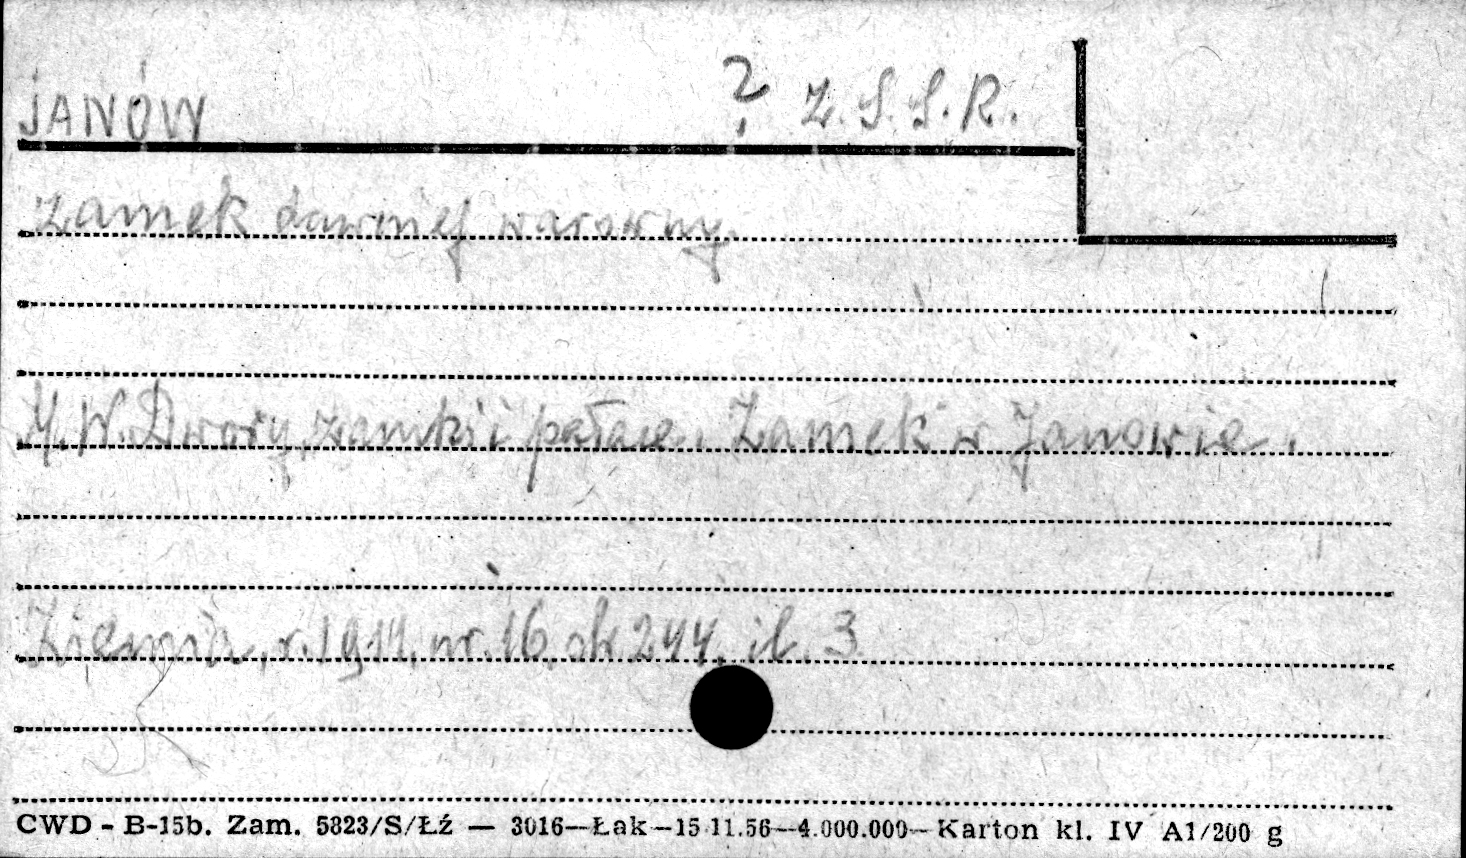 JANÓW ? Z.S.S.R.
zamek dawniej warowny.
M.W. Dwory, zamki i pałace. Zamek w Janowie.
Ziemia, r. 1911, nr. 16, str. 244, il. 3
CWD - B-15b. Zam. 5823/S/Łź — 3016—Łak—15.11.56—4.000.000—Karton kl. IV A1/200 g